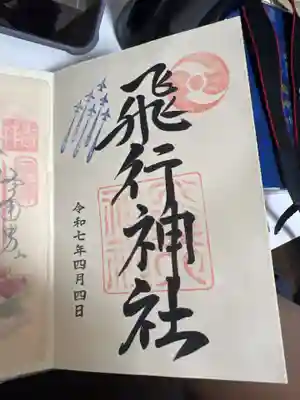 飛行神社
令和七年四月四日